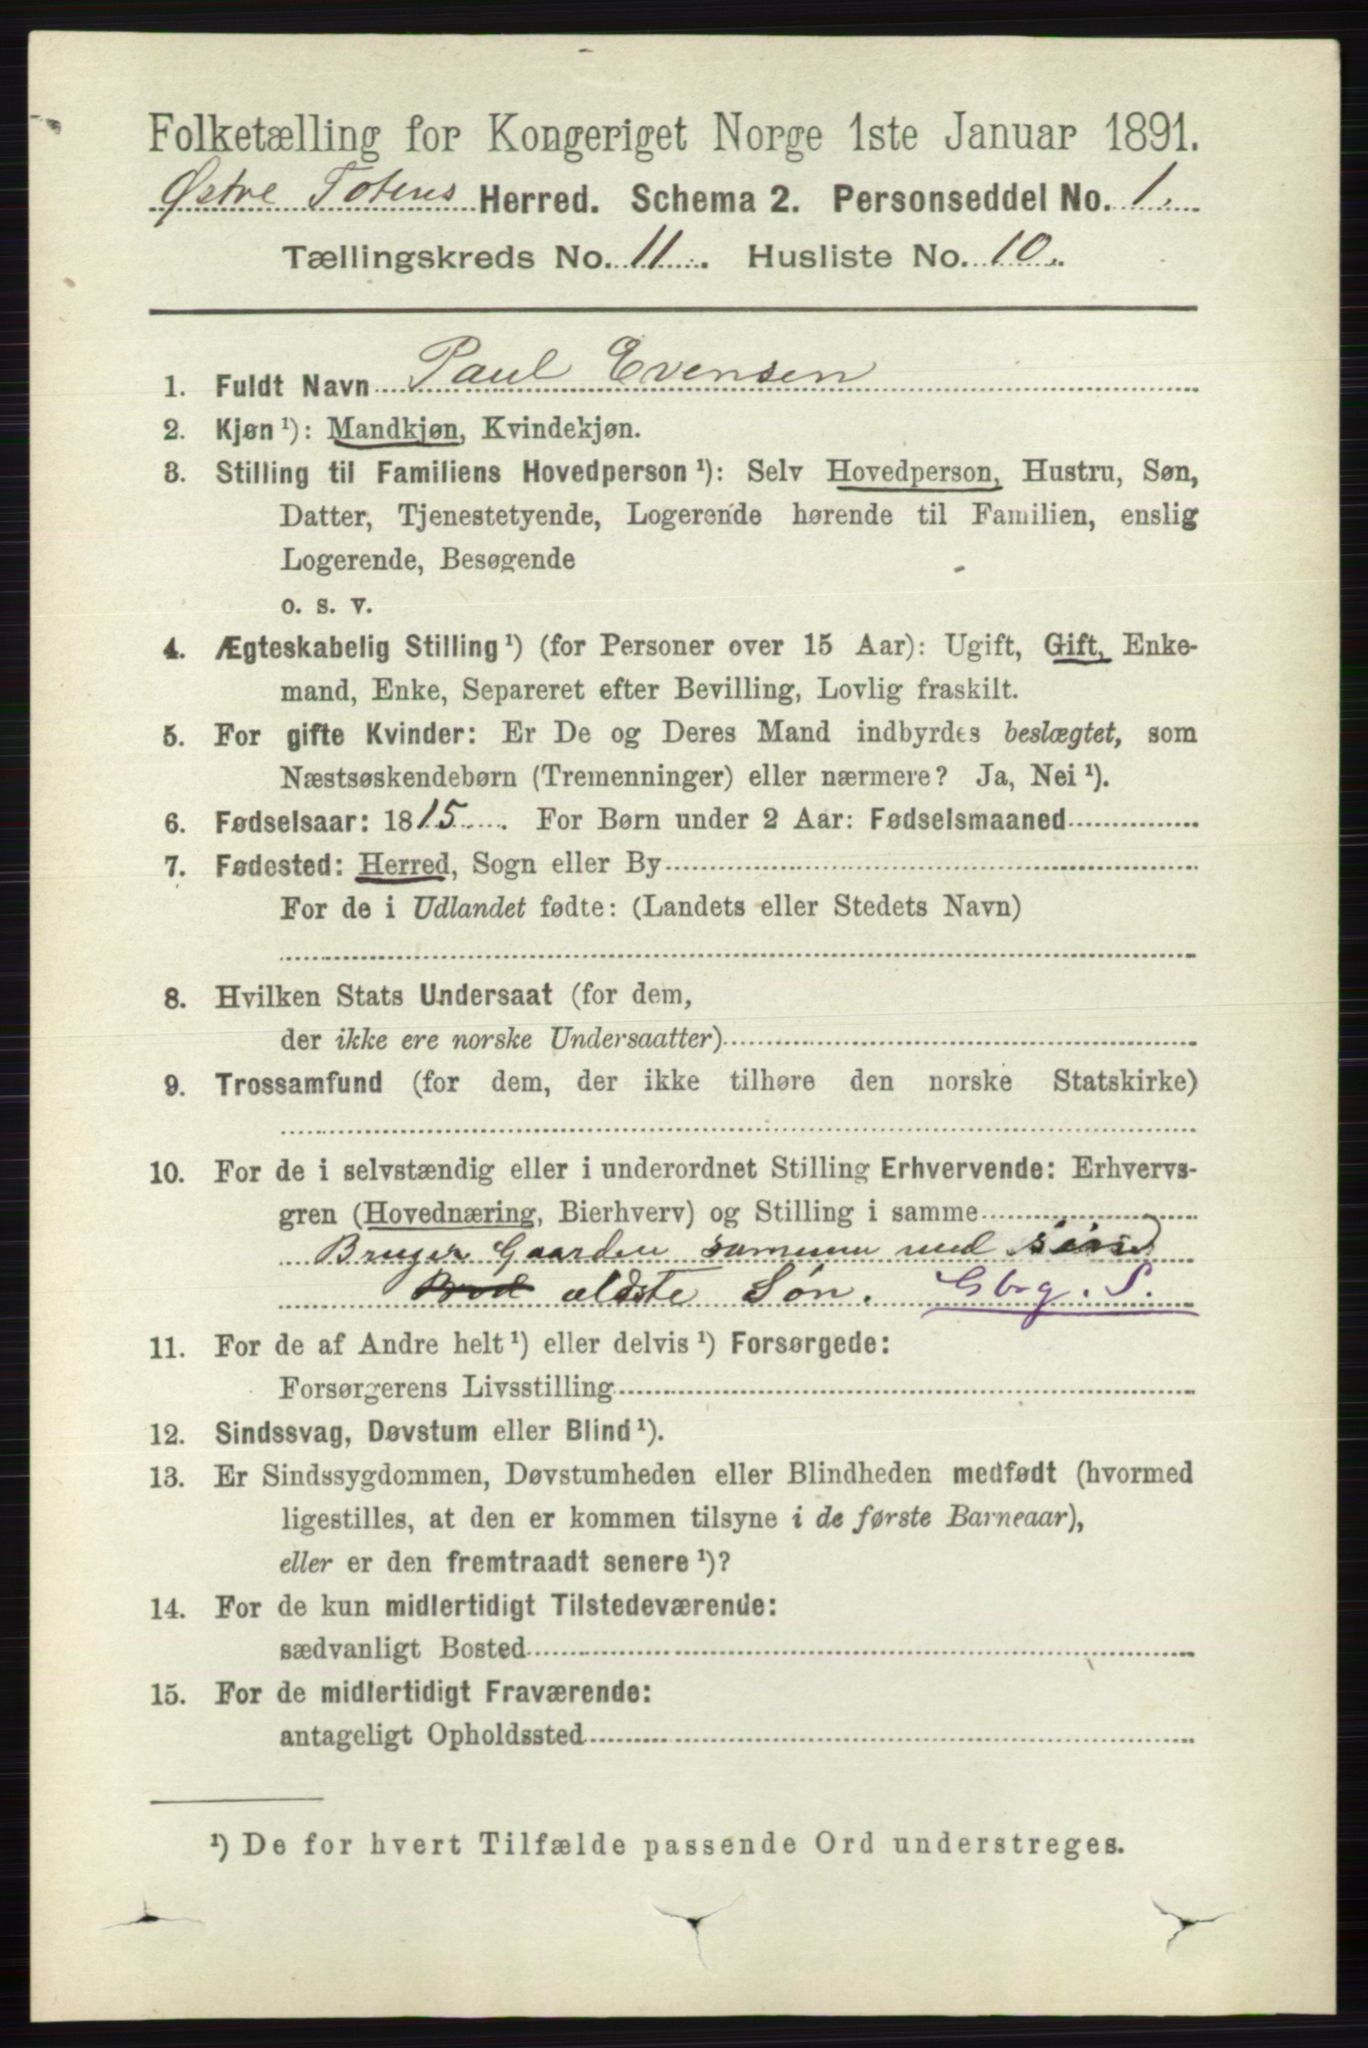 Folketælling for Kongeriget Norge 1ste Januar 1891.
Østre Totens Herred. Schema 2. Personseddel No. 1.
Tællingskreds No. 11. Husliste No. 10.
1. Fuldt Navn Paul Evensen
2. Kjøn ¹): Mandkjøn, Kvindekjøn.
3. Stilling til Familiens Hovedperson ¹): Selv Hovedperson, Hustru, Søn,
Datter, Tjenestetyende, Logerende hørende til Familien, enslig
Logerende, Besøgende
o. s. v.
4. Ægteskabelig Stilling ¹) (for Personer over 15 Aar): Ugift, Gift, Enke-
mand, Enke, Separeret efter Bevilling, Lovlig fraskilt.
5. For gifte Kvinder: Er De og Deres Mand indbyrdes beslægtet, som
Næstsøskendebørn (Tremenninger) eller nærmere? Ja, Nei ¹).
6. Fødselsaar: 1815. For Børn under 2 Aar: Fødselsmaaned
7. Fødested: Herred, Sogn eller By
For de i Udlandet fødte: (Landets eller Stedets Navn)
8. Hvilken Stats Undersaat (for dem,
der ikke ere norske Undersaatter)
9. Trossamfund (for dem, der ikke tilhøre den norske Statskirke)
10. For de i selvstændig eller i underordnet Stilling Erhvervende: Erhvervs-
gren (Hovednæring, Bierhverv) og Stilling i samme
Bruger Gaarden sammen med
ældste Søn. Gbrg. S.
11. For de af Andre helt ¹) eller delvis ¹) Forsørgede:
Forsørgerens Livsstilling
12. Sindssvag, Døvstum eller Blind ¹).
13. Er Sindssygdommen, Døvstumheden eller Blindheden medfødt (hvormed
ligestilles, at den er kommen tilsyne i de første Barneaar),
eller er den fremtraadt senere ¹)?
14. For de kun midlertidigt Tilstedeværende:
sædvanligt Bosted
15. For de midlertidigt Fraværende:
antageligt Opholdssted
¹) De for hvert Tilfælde passende Ord understreges.